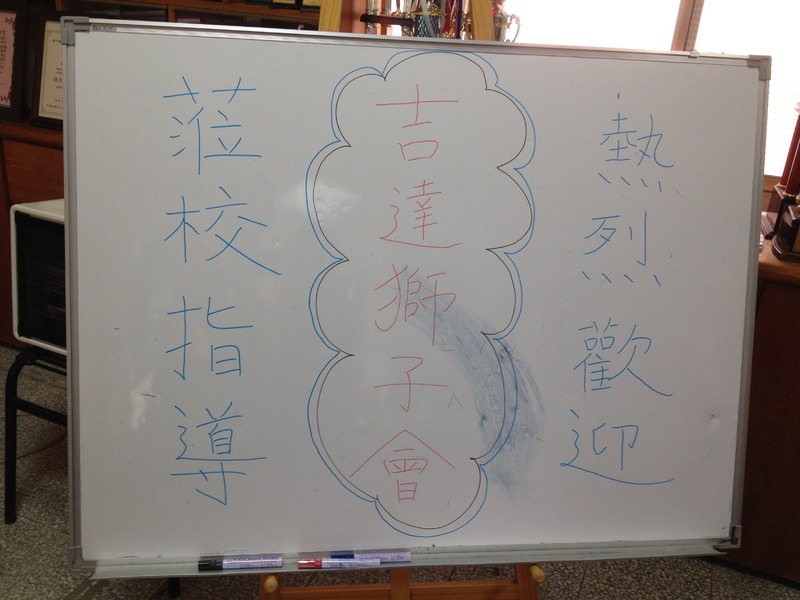 熱烈歡迎
吉達獅子會
蒞校指導